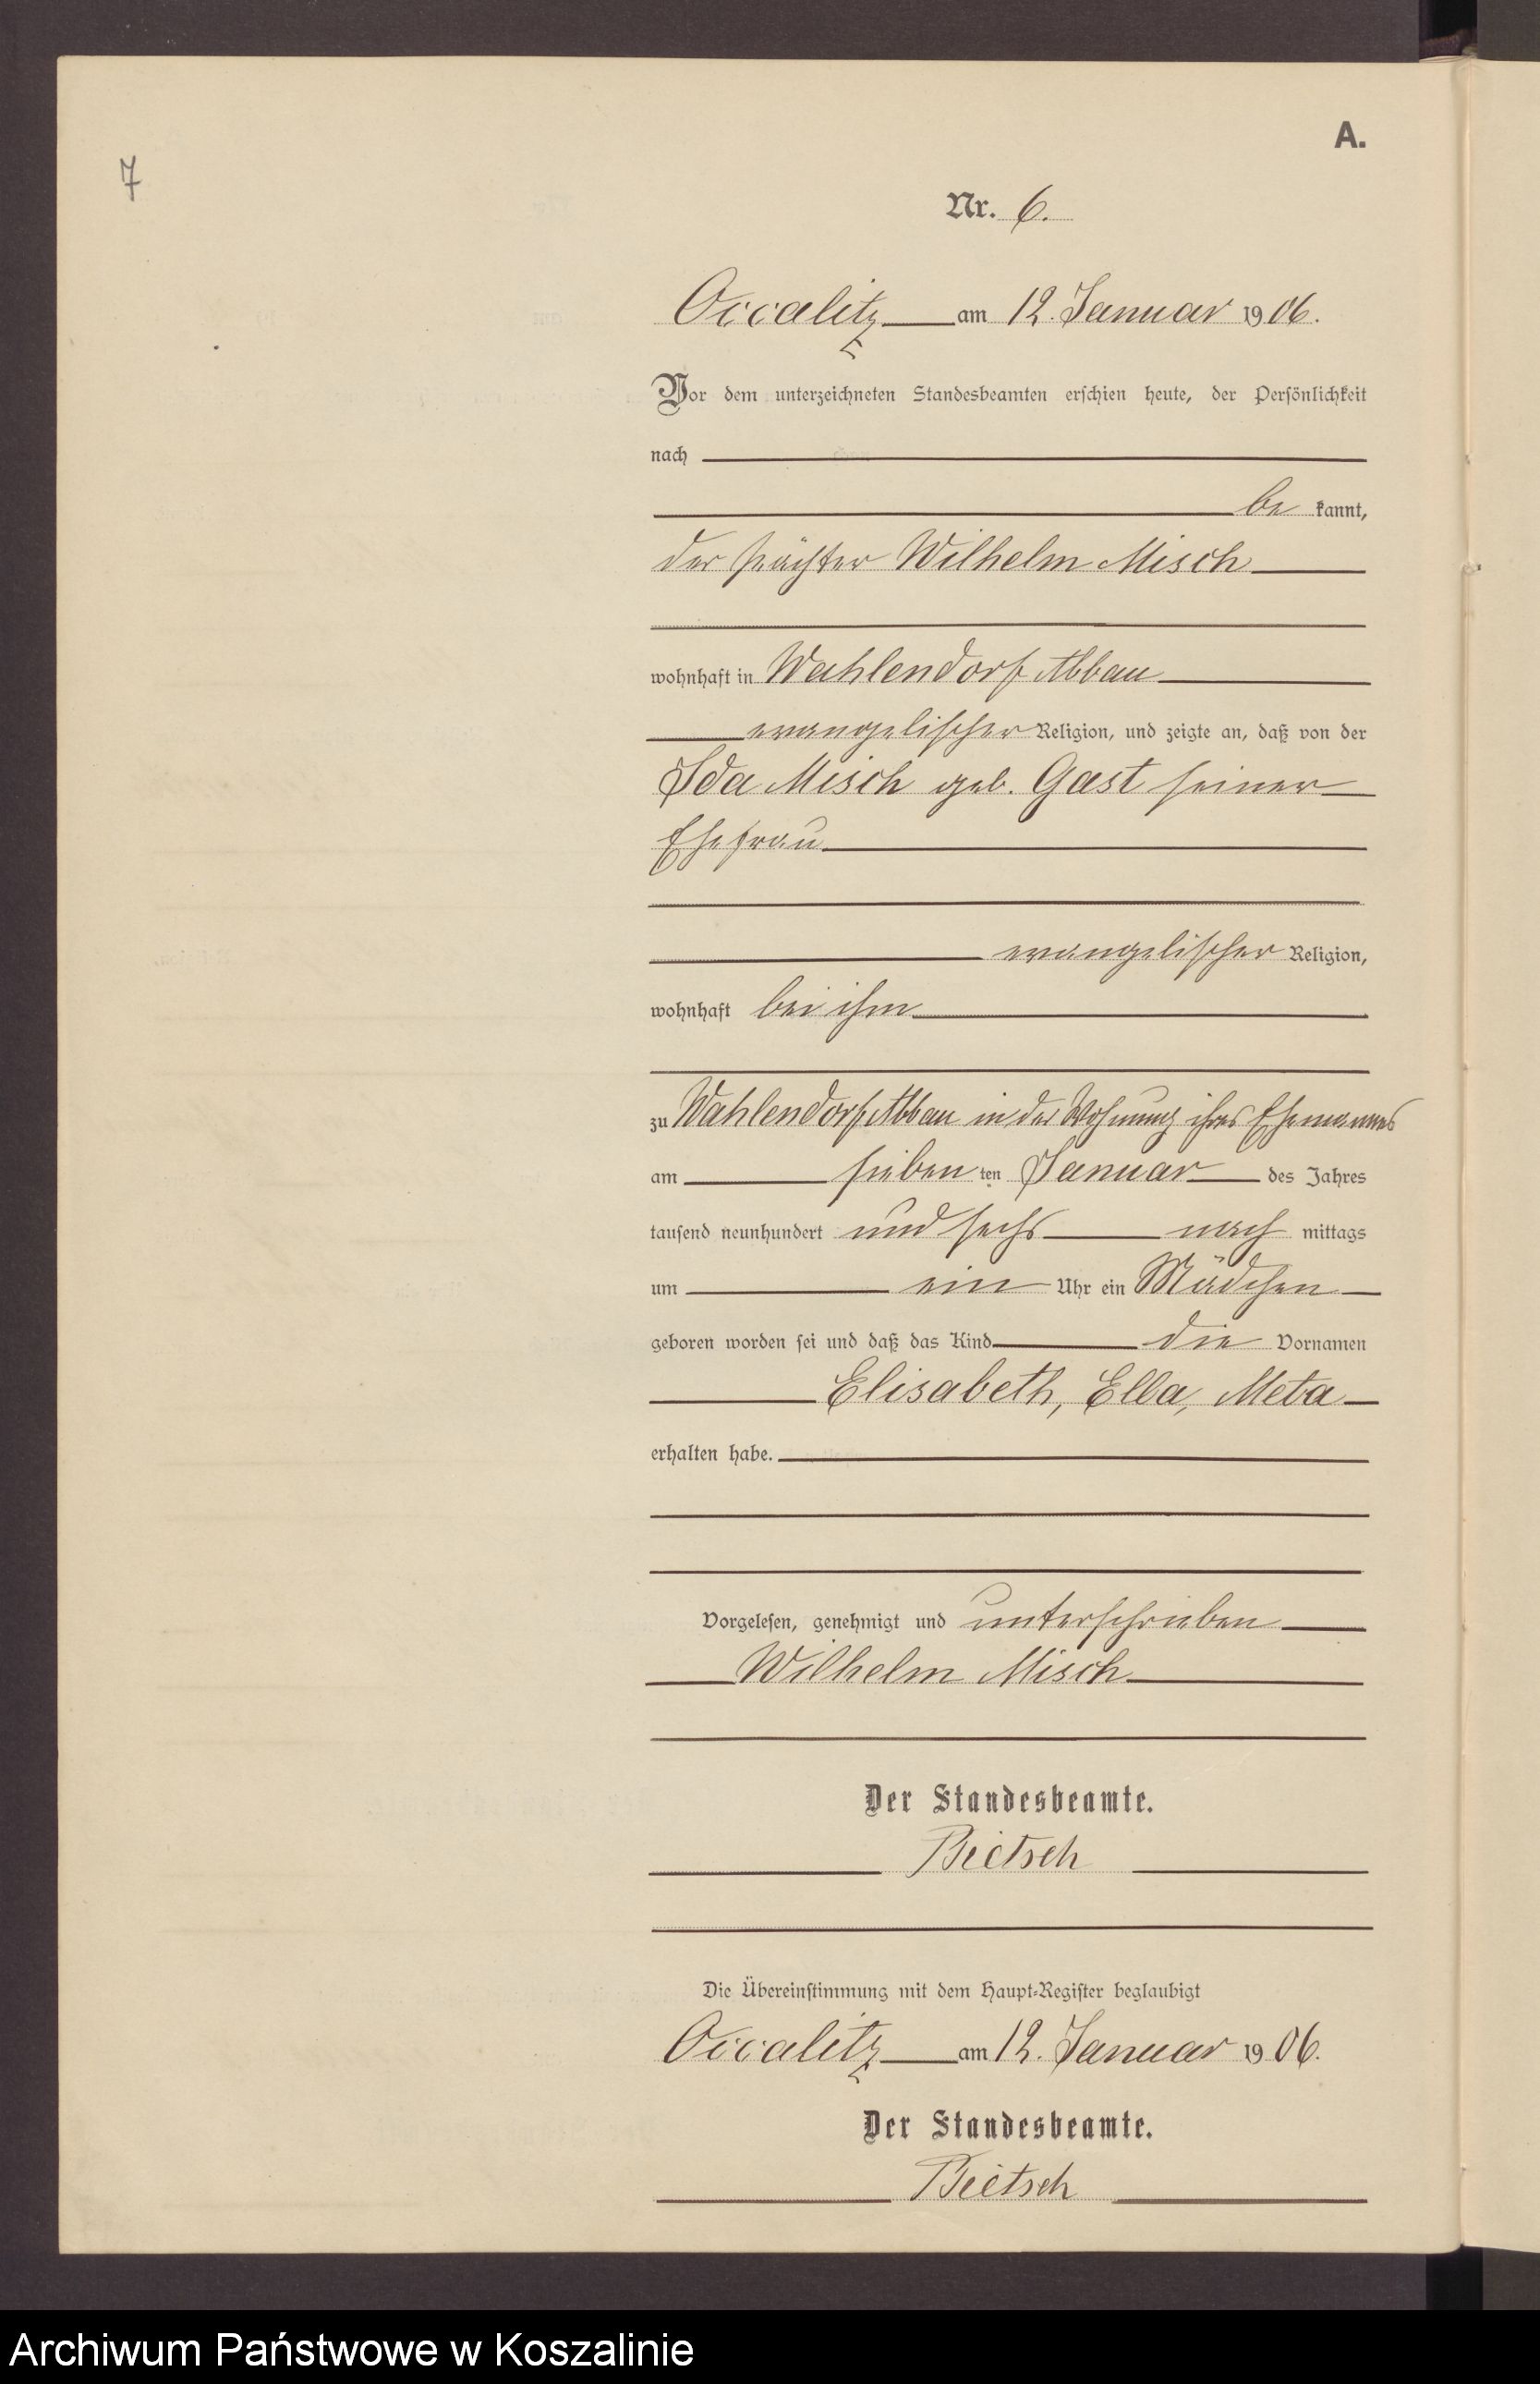 7
A.
Nr. 6.
Occalitz am 12. Januar 1906.
Vor dem unterzeichneten Standesbeamten erschien heute, der Persönlichkeit
nach
be kannt,
der Pächter Wilhelm Misch
wohnhaft in Wahlendorf Abbau
evangelischer Religion, und zeigte an, daß von der
Ida Misch geb. Gast seiner
Ehefrau
evangelischer Religion,
wohnhaft bei ihm
zu Wahlendorf Abbau in der Wohnung ihres Ehemannes
am sieben ten Januar des Jahres
tausend neunhundert und sechs nach mittags
um ein Uhr ein Mädchen
geboren worden sei und daß das Kind die Vornamen
Elisabeth, Ella, Meta
erhalten habe.
Vorgelesen, genehmigt und unterschrieben
Wilhelm Misch
Der Standesbeamte.
Bietsch
Die Übereinstimmung mit dem Haupt-Register beglaubigt
Occalitz am 12. Januar 1906.
Der Standesbeamte.
Bietsch
Archiwum Państwowe w Koszalinie